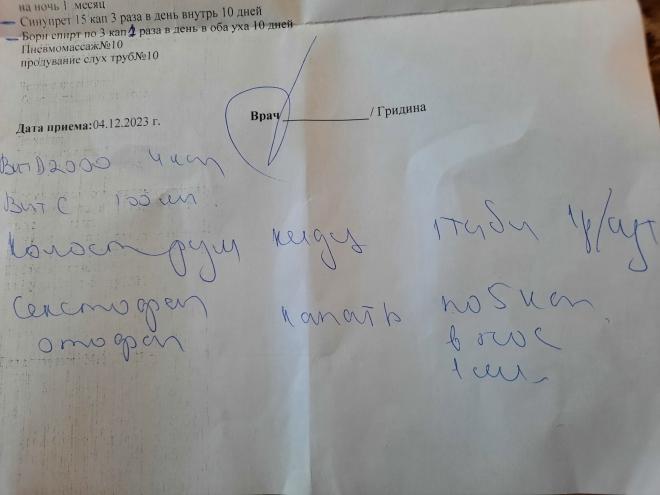 на ночь 1 месяц
– Синупрет 15 кап 3 раза в день внутрь 10 дней
– Борн спирт по 3 кап 2 раза в день в оба уха 10 дней
Пневмомассаж№10
продувание слух труб№10
Врач / Гридина
Дата приема:04.12.2023 г.
Вит D 2000 4 кап
Вит С 100 мл.
Колострум кидз 1 таб 1р/сут
Секстафаг капать по 5 кап.
отофаг в нос